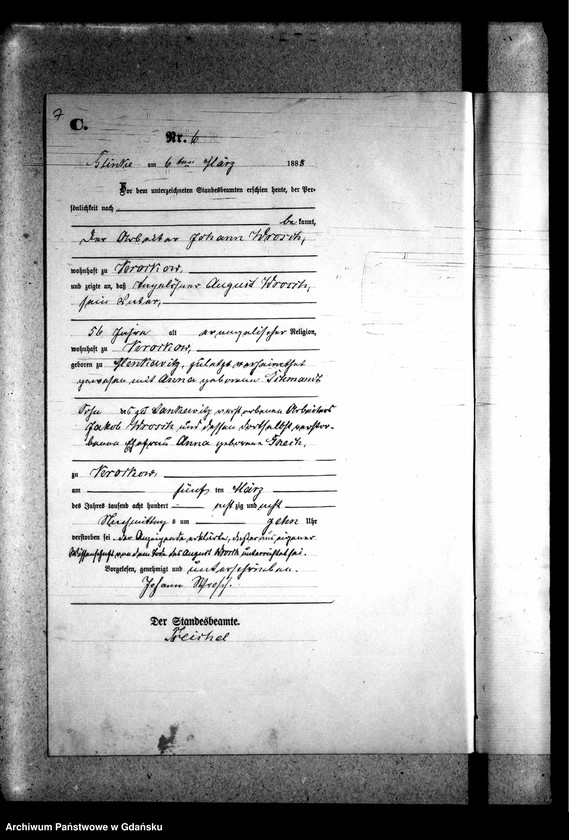 7
C.
Nr. 6
am 6ten März 1888
Vor dem unterzeichneten Standesbeamten erschien heute, der Per-
sönlichkeit nach
be kannt,
der Arbeiter Johann Wrosch,
wohnhaft zu
und zeigte an, daß August Wrosch,
sein Vater,
56 Jahre alt, evangelischer Religion,
wohnhaft zu
geboren zu zuletzt verheirathet
gewesen mit Anna geborenen
Sohn des zu verstorbenen Arbeiters
Jakob Wrosch und dessen daselbst verstor-
benen Ehefrau Anna geborene
zu
am fünf ten März
des Jahres tausend acht hundert acht zig und acht
Nachmittag s um zehn Uhr
verstorben sei, der Anzeigende erklärte, daß er aus eigener
Wissenschaft von dem Tode des August Wrosch unterrichtet sei.
Vorgelesen, genehmigt und unterschrieben.
Johann Wrosch.
Der Standesbeamte.
Archiwum Państwowe w Gdańsku